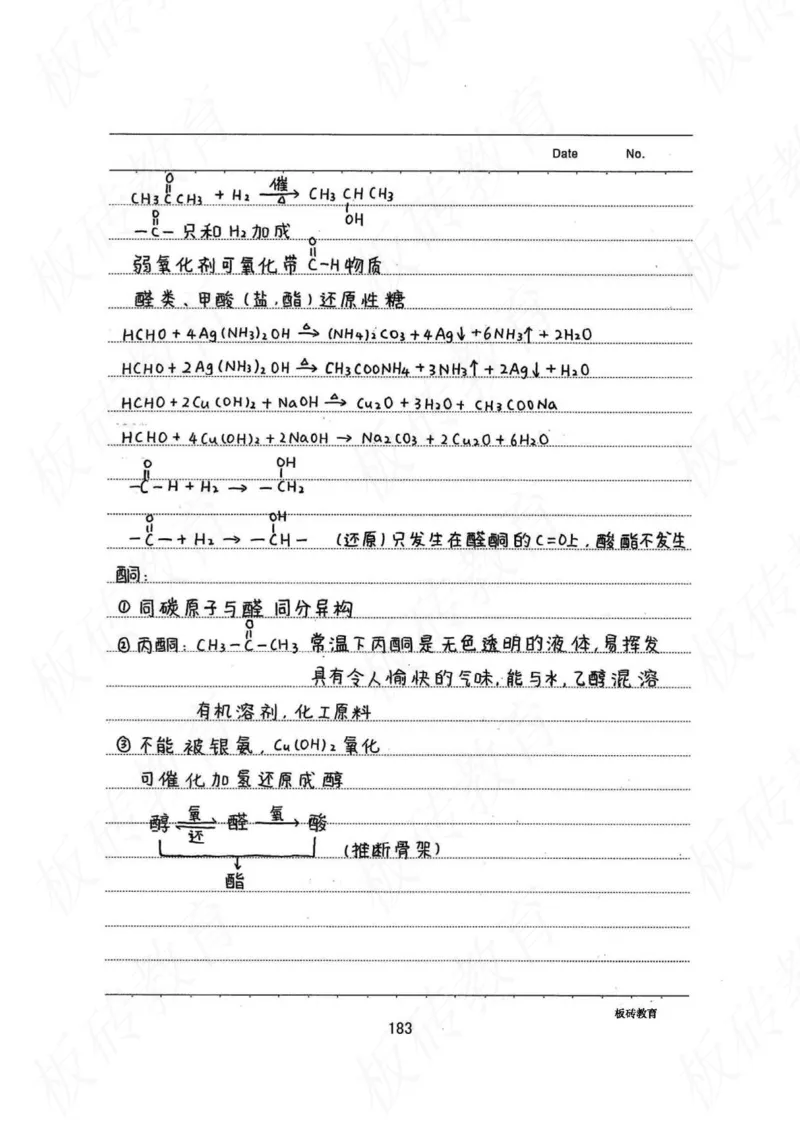 Date No.
O
CH3CCH3 + H2 催/△→ CH3CHCH3
OH
O
-C- 只和H2加成
O
弱氧化剂可氧化带 C-H物质
醛类、甲酸(盐,酯)还原性糖
HCHO + 4Ag(NH3)2OH △→ (NH4)2CO3 + 4Ag↓ + 6NH3↑ + 2H2O
HCHO + 2Ag(NH3)2OH △→ CH3COONH4 + 3NH3↑ + 2Ag↓ + H2O
HCHO + 2Cu(OH)2 + NaOH △→ Cu2O + 3H2O + CH3COONa
HCHO + 4Cu(OH)2 + 2NaOH → Na2CO3 + 2Cu2O + 6H2O
O OH
-C-H + H2 → -CH2
O OH
-C- + H2 → -CH- (还原)只发生在醛酮的C=O上,酸酯不发生
酮:
① 同碳原子与醛 同分异构
O
② 丙酮: CH3-C-CH3 常温下丙酮是无色透明的液体,易挥发
具有令人愉快的气味,能与水,乙醇混溶
有机溶剂,化工原料
③ 不能被银氨, Cu(OH)2氧化
可催化加氢还原成醇
醇 氧⇌还 醛 氧→ 酸
(推断骨架)
酯
板砖教育
183